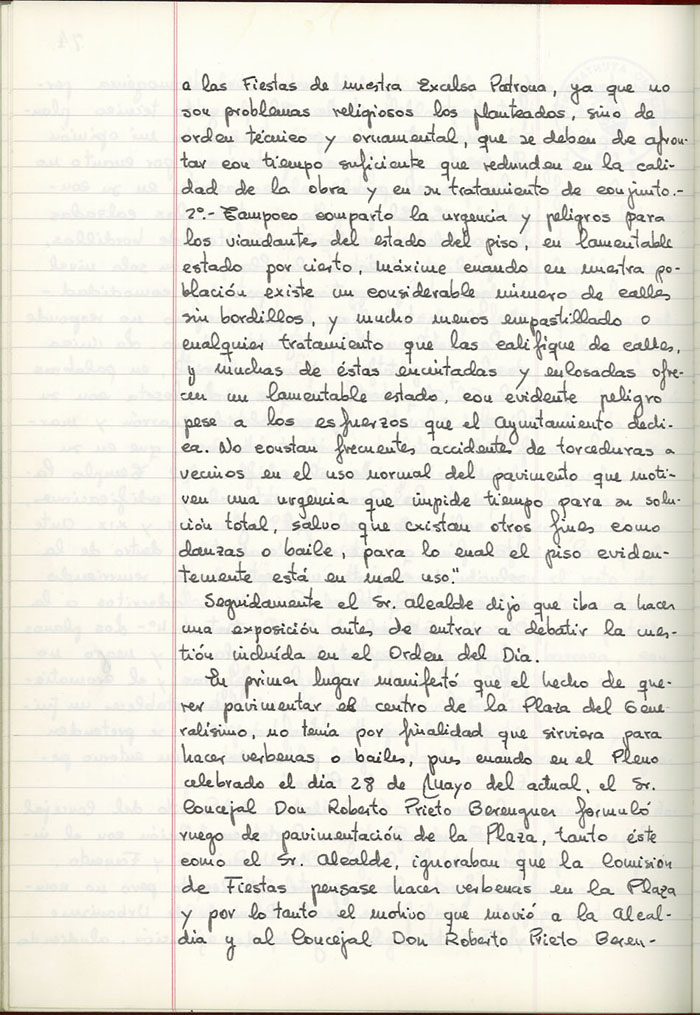 a las Fiestas de nuestra Excelsa Patrona, ya que no
son problemas religiosos los planteados, sino de
orden técnico y ornamental, que se deben de afron-
tar con tiempo suficiente que redunden en la cali-
dad de la obra y en su tratamiento de conjunto.-
2º.- Tampoco comparto la urgencia y peligros para
los viandantes del estado del piso, en lamentable
estado por cierto, máxime cuando en nuestra po-
blación existe un considerable número de calles
sin bordillos, y mucho menos empastillado o
cualquier tratamiento que las califique de calles,
y muchas de éstas encintadas y enlosadas ofre-
cen un lamentable estado, con evidente peligro
pese a los esfuerzos que el Ayuntamiento dedi-
ca. No constan frecuentes accidentes de torceduras a
vecinos en el uso normal del pavimento que moti-
ven una urgencia que impide tiempo para su solu-
ción total, salvo que existan otros fines como
danzas o baile, para lo cual el piso eviden-
temente está en mal uso."
Seguidamente el Sr. Alcalde dijo que iba a hacer
una exposición antes de entrar a debatir la cues-
tión incluída en el Orden del Día.
En primer lugar manifestó que el hecho de que-
rer pavimentar el centro de la Plaza del Gene-
ralísimo, no tenía por finalidad que sirviera para
hacer verbenas o bailes, pues cuando en el Pleno
celebrado el día 28 de Mayo del actual, el Sr.
Concejal Don Roberto Prieto Berenguer formuló
ruego de pavimentación de la Plaza, tanto éste
como el Sr. Alcalde, ignoraban que la Comisión
de Fiestas pensase hacer verbenas en la Plaza
y por lo tanto el motivo que movió a la Alcal-
día y al Concejal Don Roberto Prieto Beren-